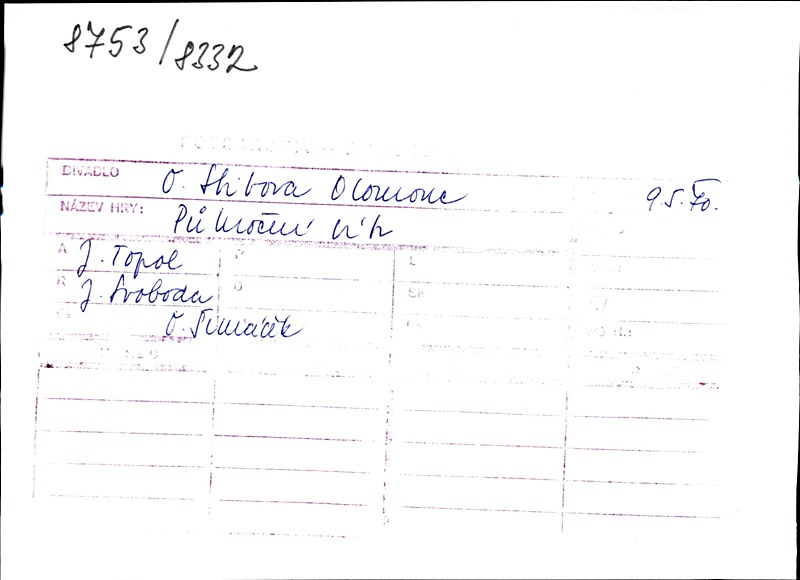 8753/8332
DIVADLO O. Stibora Olomouc 9.5.70.
NÁZEV HRY: Půlnoční vítr
A J. Topol P L
R J. Svoboda D Sh
O. Šimáček